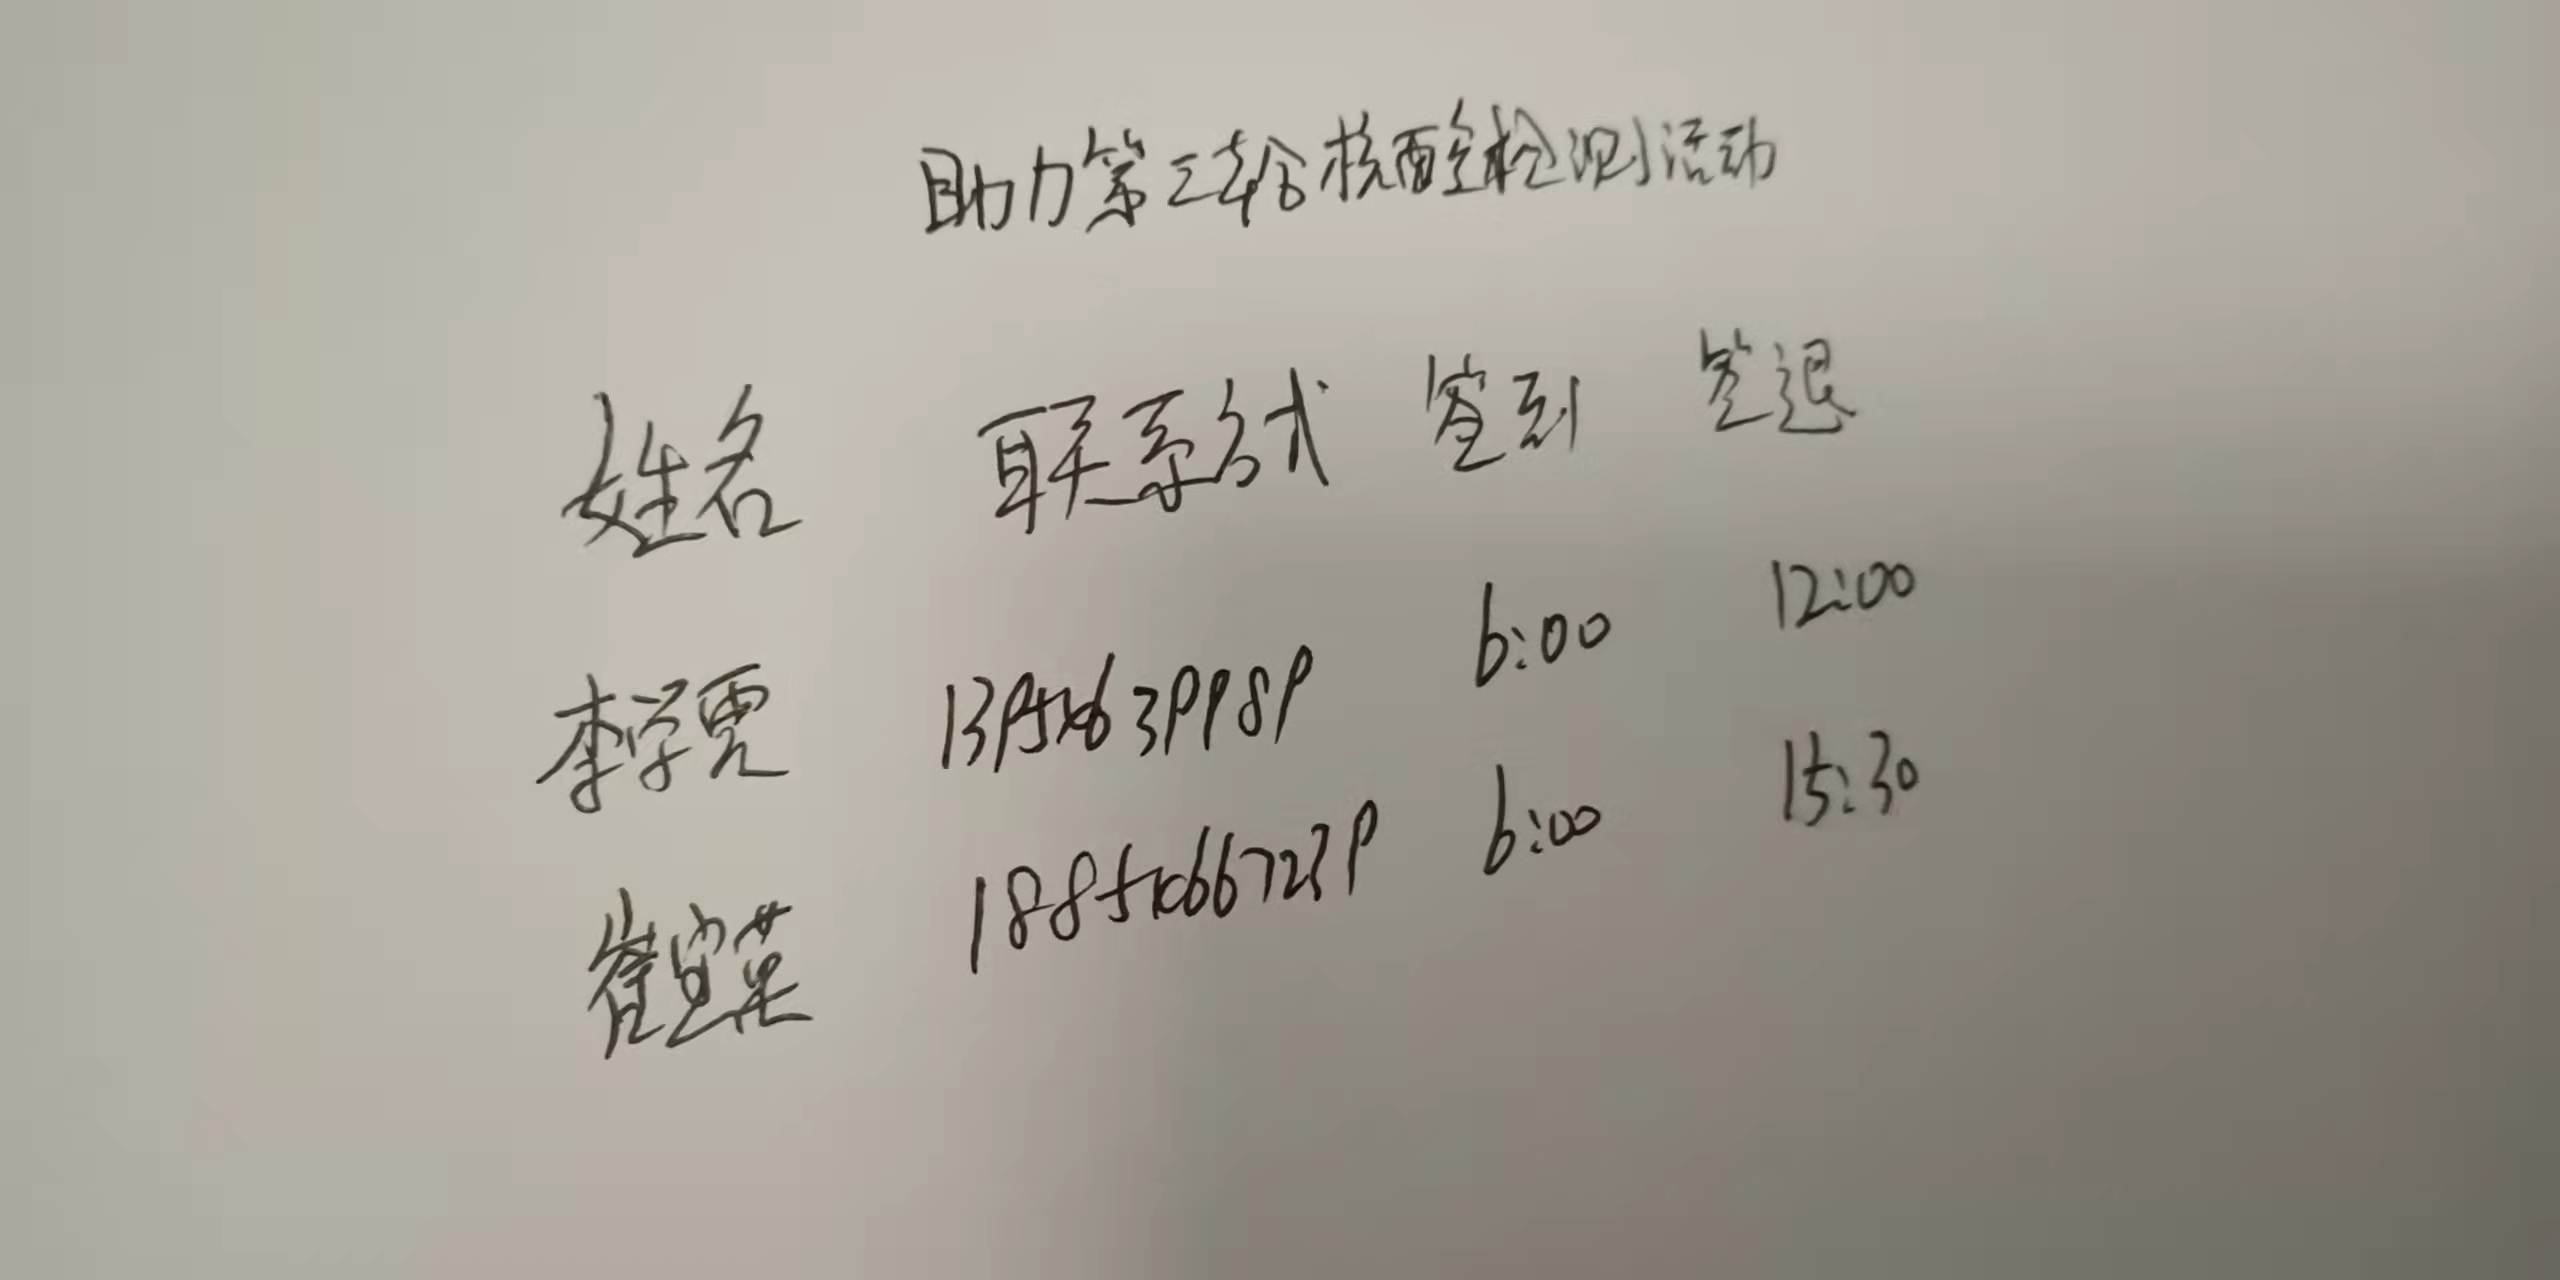 助力第三轮核酸检测活动
姓名 联系方式 签到 签退
李学 6:00 12:00
崔宜英 6:00 15:30